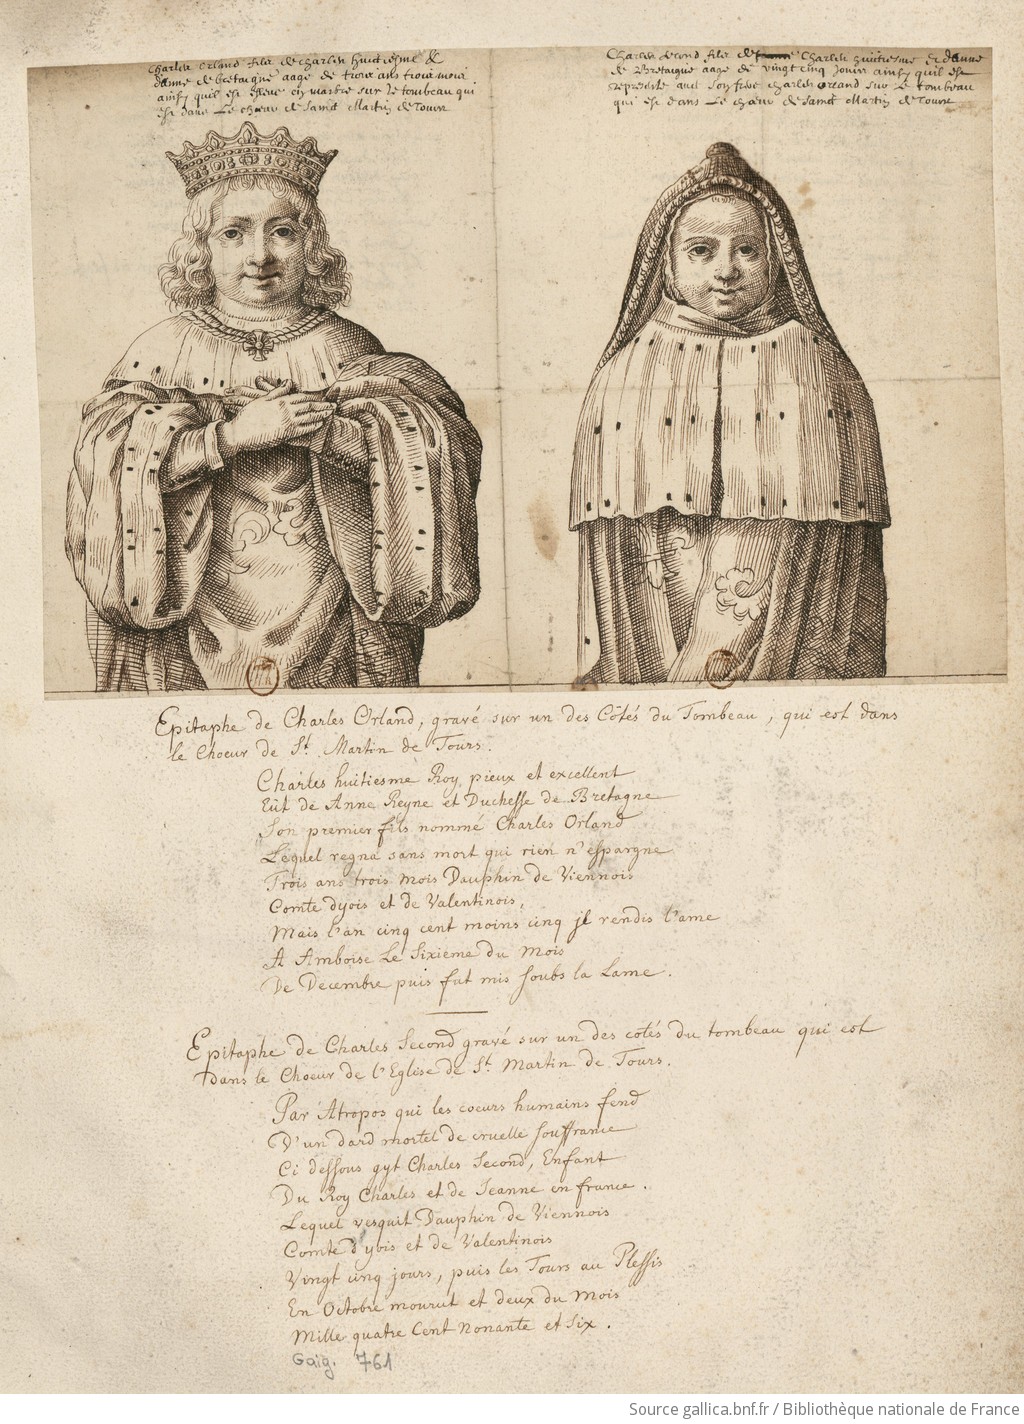 Charles Orland filz de charles huictiesme &
danne de bretaigne aagé de trois ans trois mois
ainsy quil est en marbre sur le tombeau qui
est dans Le chœur de sainct Martin de Tours
Charles second filz de Charles huictiesme & danne
de Bretaigne aagé de vingt cinq jours ainsy quil est
represente avec son frere charles orland sur Le tombeau
qui est dans Le chœur de Sainct Martin de Tours
Epitaphe de Charles Orland, gravé sur un des Côtés du Tombeau, qui est dans
le Choeur de St. Martin de Tours.
Charles huitiesme Roy pieux et excellent
Eût de Anne Reyne et Duchesse de Bretagne
Son premier fils nommé Charles Orland
Lequel regna sans mort qui rien n'espargne
Trois ans trois mois Dauphin de Viennois
Comte dyois et de Valentinois,
Mais l'an cinq cent moins cinq jl rendis l'ame
A Amboise Le Sixieme du Mois
De Decembre puis fut mis soubs la Lame.
Epitaphe de Charles Second gravé sur un des cotés du tombeau qui est
dans le Choeur de l'Eglise de St. Martin de Tours.
Par Atropos qui les coeurs humains fend
D'un dard mortel de cruelle souffrance
Ci dessous gyt Charles Second, Enfant
Du Roy Charles et de Jeanne en france.
Lequel vesquit Dauphin de Viennois
Comte d'yois et de Valentinois
Vingt cinq jours, puis les Tours au Plessis
En Octobre mourut et deux du Mois
Mille quatre Cent Nonante et Six.
Gaig. 761
Source gallica.bnf.fr / Bibliothèque nationale de France